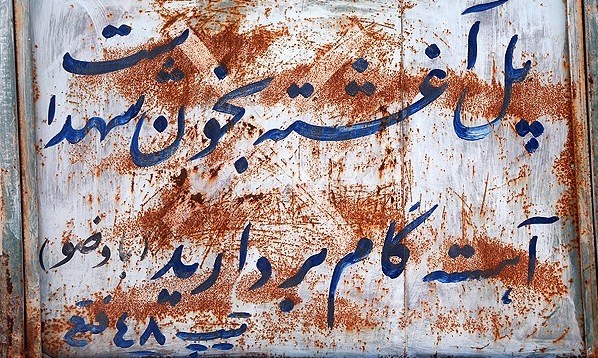 پل آغشته بخون شهداست
آهسته گام بردارید
(با وضو)
تیپ ٤٨ فتح